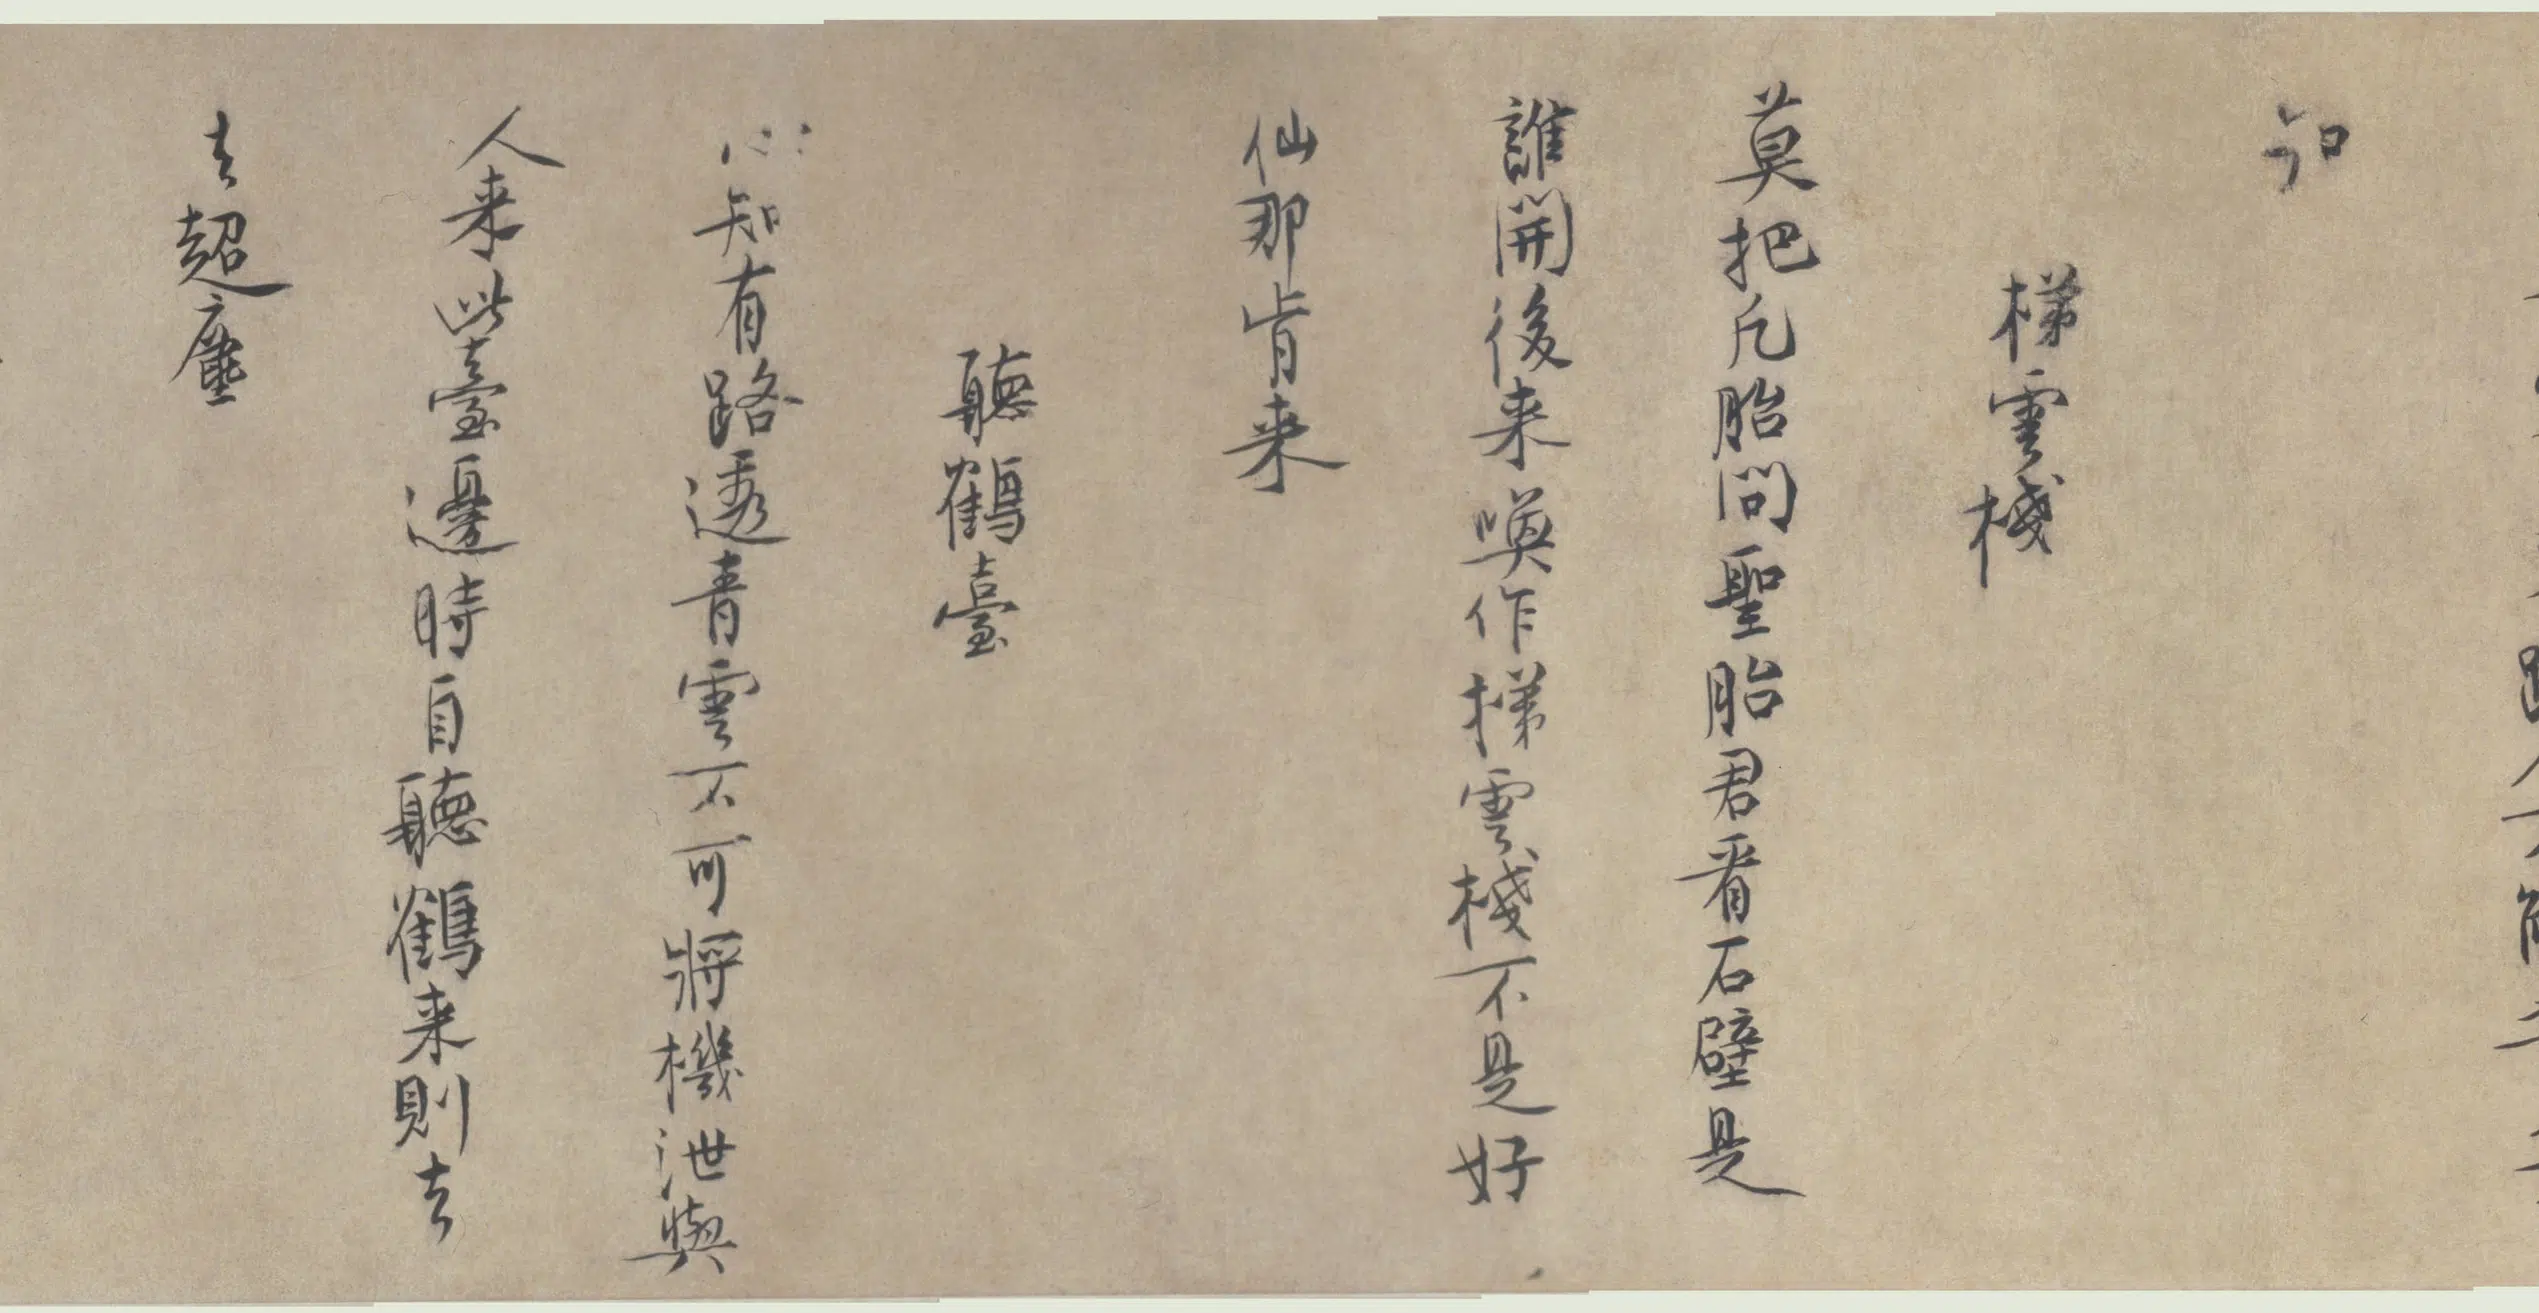 知
梯雲棧
莫把凡胎問聖胎君看石壁是
誰開後来喚作梯雲棧不是好
仙那肯来
聽鶴臺
心知有路透青雲不可將機泄與
人来此臺邊時自聽鶴来則去
去超塵